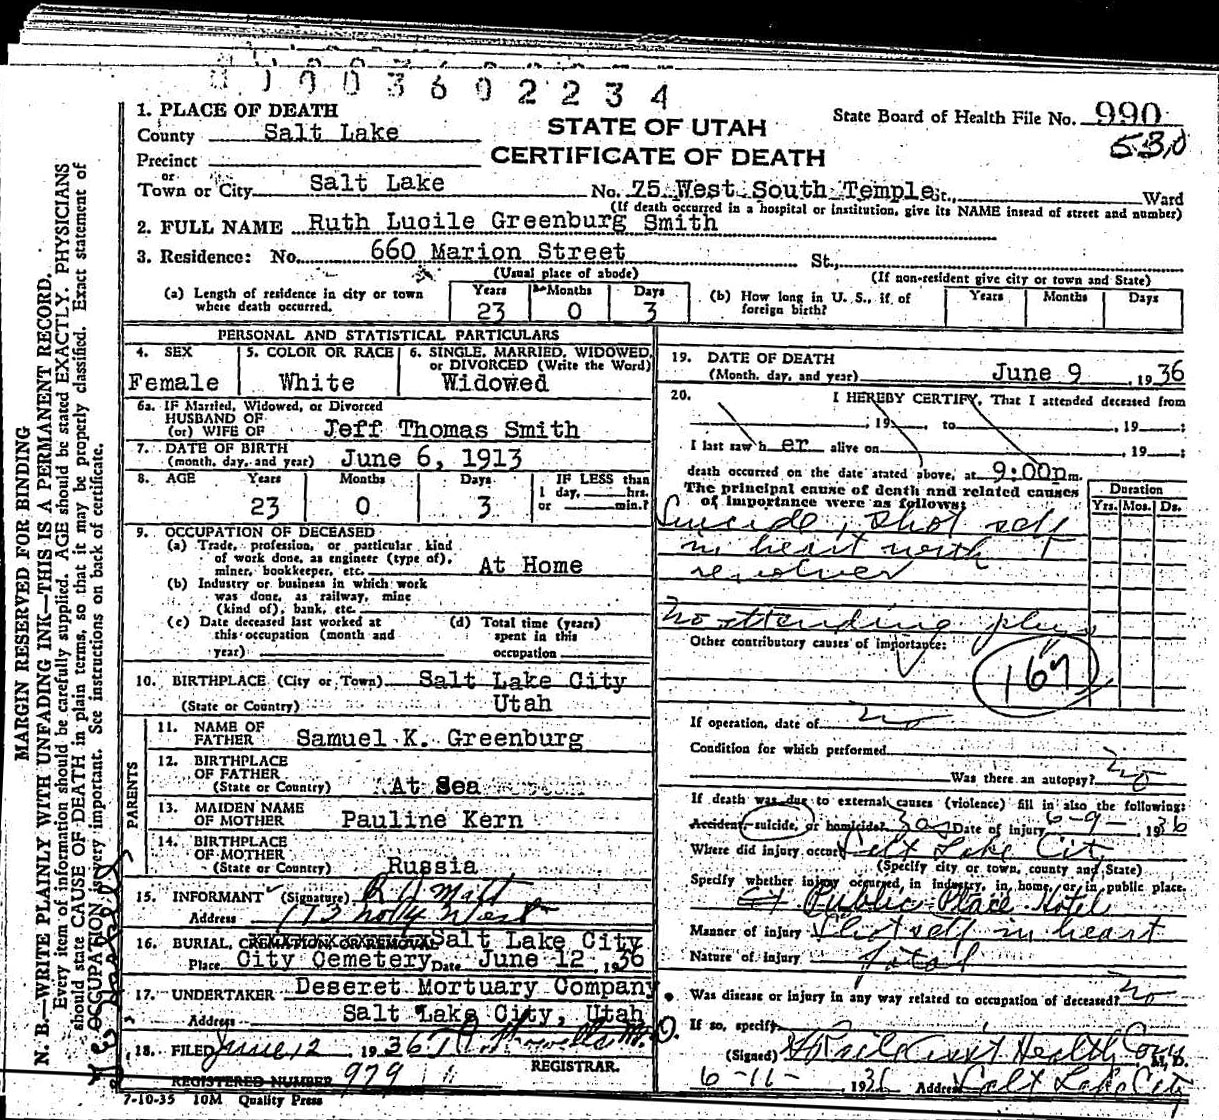 0 1 0 0 3 6 0 2 2 3 4
1. PLACE OF DEATH
County Salt Lake
Precinct
or
Town or City Salt Lake
STATE OF UTAH
CERTIFICATE OF DEATH
State Board of Health File No. 990
530
No. 75 West South Temple St., Ward
(If death occurred in a hospital or institution, give its NAME instead of street and number)
2. FULL NAME Ruth Lucile Greenburg Smith
3. Residence: No. 660 Marion Street St.,
(Usual place of abode)
(If non-resident give city or town and State)
(a) Length of residence in city or town where death occurred. Years 23 Months 0 Days 3
(b) How long in U. S., if of foreign birth? Years Months Days
PERSONAL AND STATISTICAL PARTICULARS
4. SEX Female
5. COLOR OR RACE White
6. SINGLE, MARRIED, WIDOWED, or DIVORCED (Write the Word) Widowed
6a. IF Married, Widowed, or Divorced
HUSBAND OF
(or) WIFE OF Jeff Thomas Smith
7. DATE OF BIRTH
(month, day, and year) June 6, 1913
8. AGE Years 23 Months 0 Days 3 IF LESS than
1 day, hrs.
or min.?
9. OCCUPATION OF DECEASED
(a) Trade, profession, or particular kind
of work done, as engineer (type of),
miner, bookkeeper, etc. At Home
(b) Industry or business in which work
was done, as railway, mine
(kind of), bank, etc.
(c) Date deceased last worked at
this occupation (month and
year)
(d) Total time (years)
spent in this
occupation
10. BIRTHPLACE (City or Town) Salt Lake City
(State or Country) Utah
PARENTS
11. NAME OF
FATHER Samuel K. Greenburg
12. BIRTHPLACE
OF FATHER
(State or Country) At Sea
13. MAIDEN NAME
OF MOTHER Pauline Kern
14. BIRTHPLACE
OF MOTHER
(State or Country) Russia
15. INFORMANT (Signature)
Address
16. BURIAL, CREMATION OR REMOVAL Salt Lake City
Place City Cemetery Date June 12 1936
17. UNDERTAKER Deseret Mortuary Company
Address Salt Lake City, Utah
18. FILED June 12, 1936 M.D.
REGISTRAR.
REGISTERED NUMBER 979
7-10-35 10M Quality Press
19. DATE OF DEATH
(Month, day, and year) June 9, 1936
20. I HEREBY CERTIFY, That I attended deceased from
, 19 , to , 19 ;
I last saw h er alive on , 19 ;
death occurred on the date stated above, at 9:00p m.
The principal cause of death and related causes
of importance were as follows:
Duration
Yrs. Mos. Ds.
Suicide, shot self
in heart with
revolver
No attending phys
Other contributory causes of importance:
167
If operation, date of no
Condition for which performed
Was there an autopsy? no
If death was due to external causes (violence) fill in also the following:
Accident, suicide, or homicide? Date of injury 6-9- 1936
Where did injury occur Salt Lake City
(Specify city or town, county and State)
Specify whether injury occurred, in industry, in home, or in public place.
Public Place Hotel
Manner of injury Shot self in heart
Nature of injury fatal
Was disease or injury in any way related to occupation of deceased? no
If so, specify
(Signed) Health Com M. D.
6-11- 1936 Address Salt Lake City
MARGIN RESERVED FOR BINDING
N. B.—WRITE PLAINLY WITH UNFADING INK—THIS IS A PERMANENT RECORD.
Every item of information should be carefully supplied. AGE should be stated EXACTLY. PHYSICIANS
should state CAUSE OF DEATH in plain terms, so that it may be properly classified. Exact statement of
OCCUPATION is very important. See instructions on back of certificate.